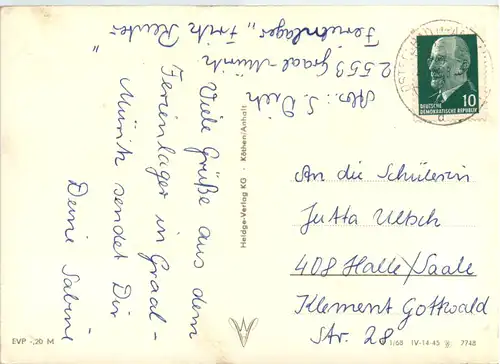 Abs.: S. Dich
2553 Graal-Müritz
Ferienlager "Fritz Reuter"
Viele Grüße aus dem
Ferienlager in Graal-
Müritz sendet Dir
Deine Sabine
Heldge-Verlag KG · Köthen/Anhalt
DEUTSCHE
DEMOKRATISCHE REPUBLIK
10
An die Schülerin
Jutta
408 Halle/Saale
Klement Gottwald
Str. 28
EVP -,20 M
1/68 IV-14-45 7748